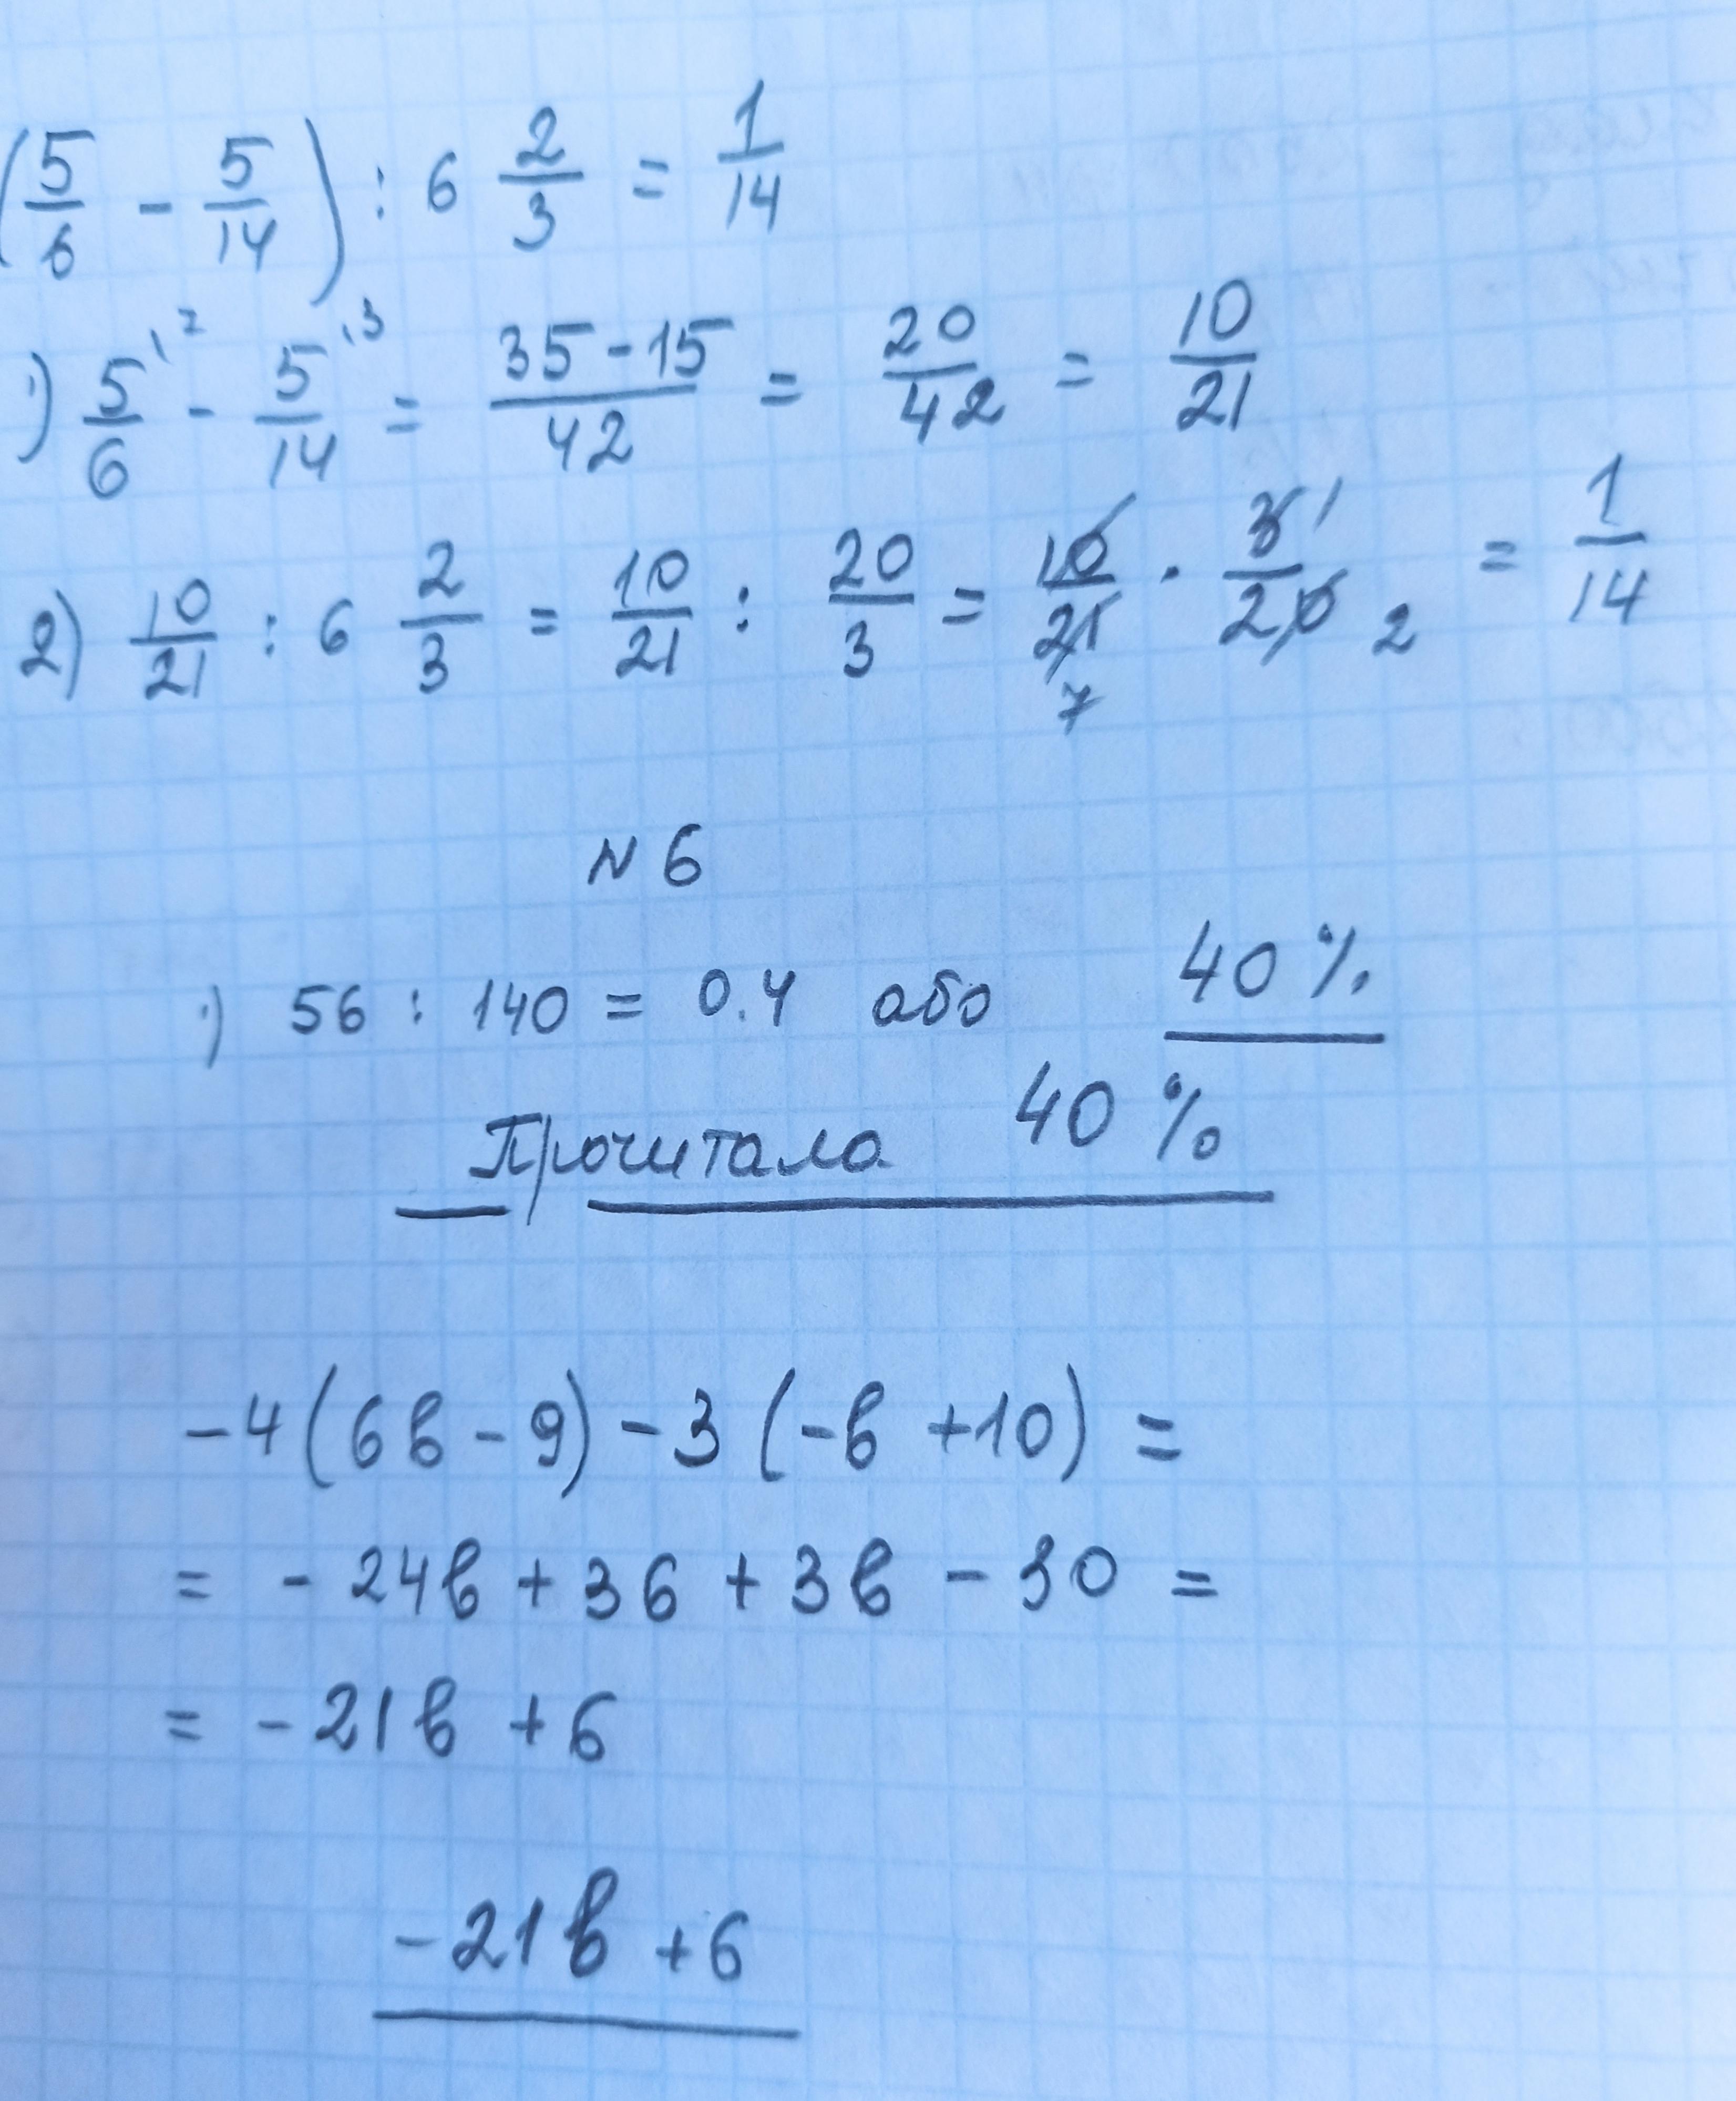 (5/6 - 5/14) : 6 2/3 = 1/14
1) 5/6 ^(7 - 5/14 ^(3 = (35-15)/42 = 20/42 = 10/21
2) 10/21 : 6 2/3 = 10/21 : 20/3 = 10/21 7 · 3/20 1 2 = 1/14
N 6
1) 56 : 140 = 0.4 або 40 %.
Прочитала 40 %
-4(6в - 9) - 3(-в + 10) =
= - 24в + 36 + 3в - 30 =
= - 21в + 6
- 21в + 6